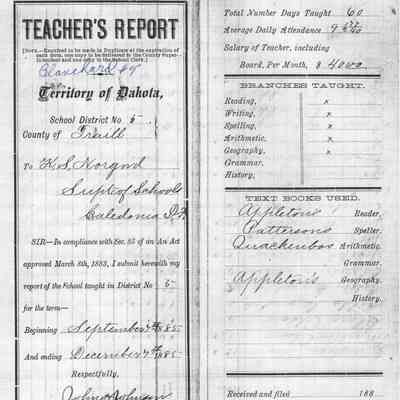 TEACHER'S REPORT
[NOTE.—Required to be made in Duplicate at the expiration of
each term, one copy to be delivered to the County Super-
intendent and one copy to the School Clerk.]
Blanchard
Territory of Dakota,
School District No 5
County of Traill
To K. S. Norgord
Supt of Schools
Caledonia D.T.
SIR—In compliance with Sec. 85 of an Act
approved March 8th, 1883, I submit herewith my
report of the School taught in District No 5
for the term—
Beginning September 1885
And ending December 1885
Respectfully,
John Johnson
Total Number Days Taught 60
Average Daily Attendance 9
Salary of Teacher, including
Board, Per Month, $ 40.00
BRANCHES TAUGHT.
Reading, x
Writing, x
Spelling, x
Arithmetic, x
Geography, x
Grammar,
History.
TEXT BOOKS USED.
Appletons Reader,
Pattersons Speller,
Quackenbos Arithmetic
Grammar.
Appleton's Geography.
History.
Received and filed 188